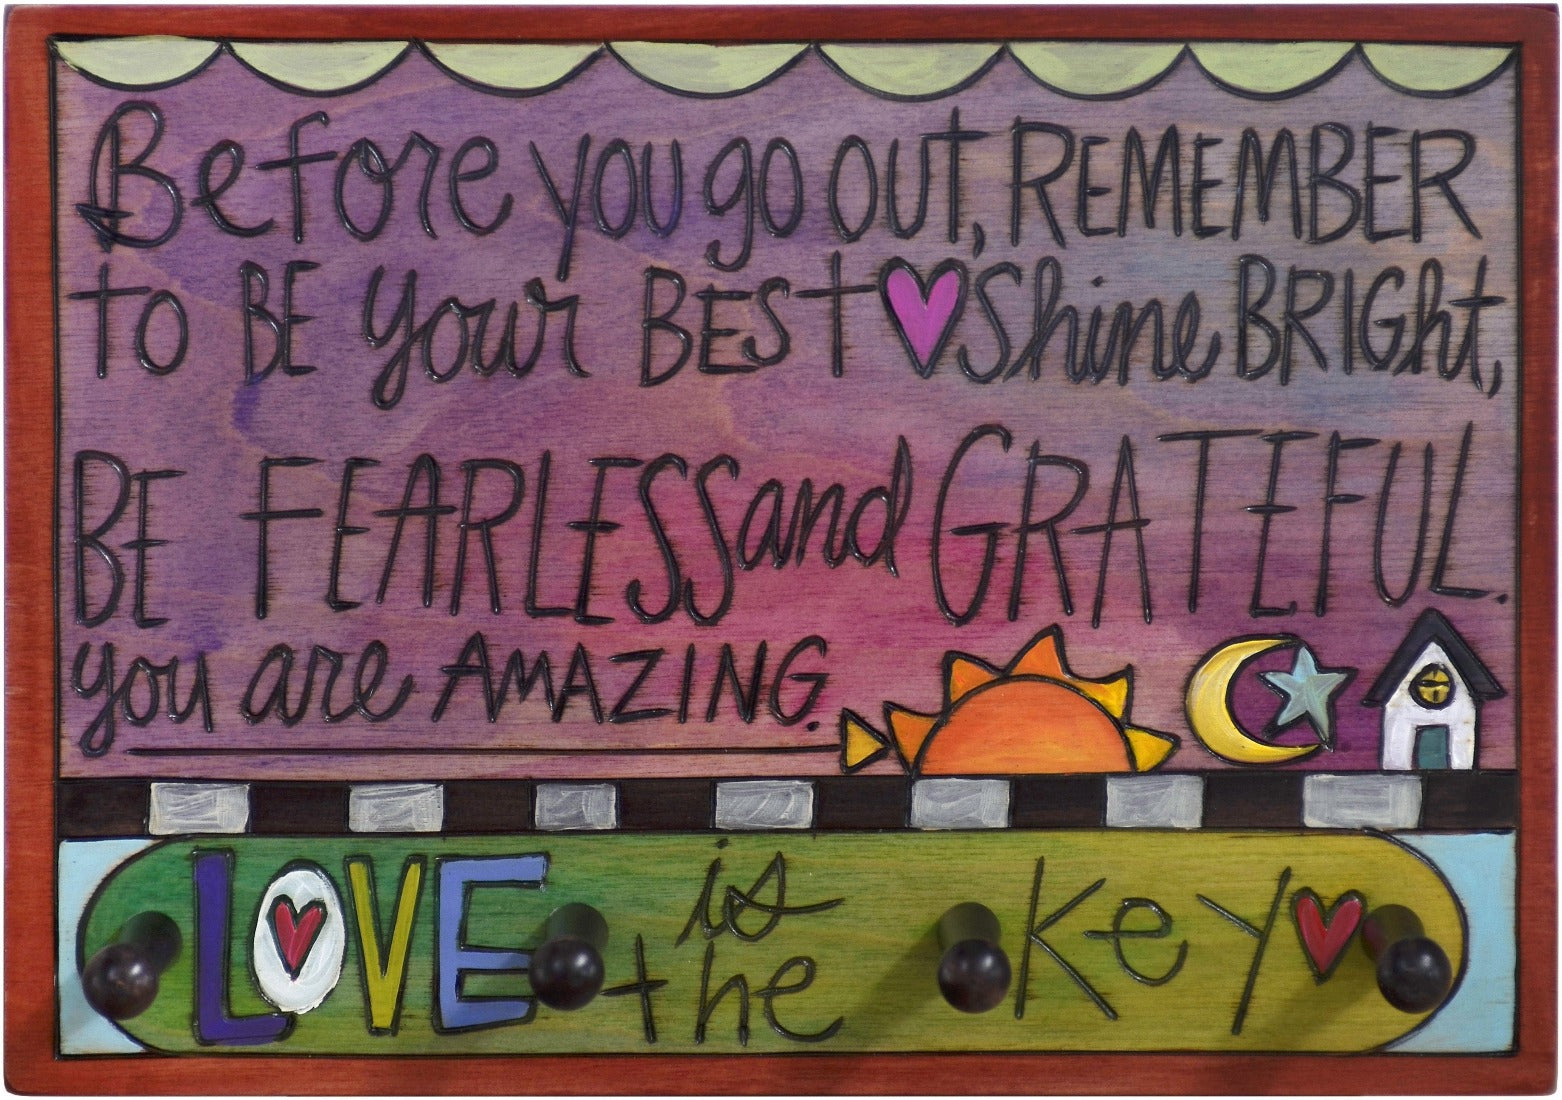 Before you go out, REMEMBER
to BE your BEST Shine BRIGht,
BE FEARLESS and GRATEFUL.
you are AMAZING.
LOVE is the Key